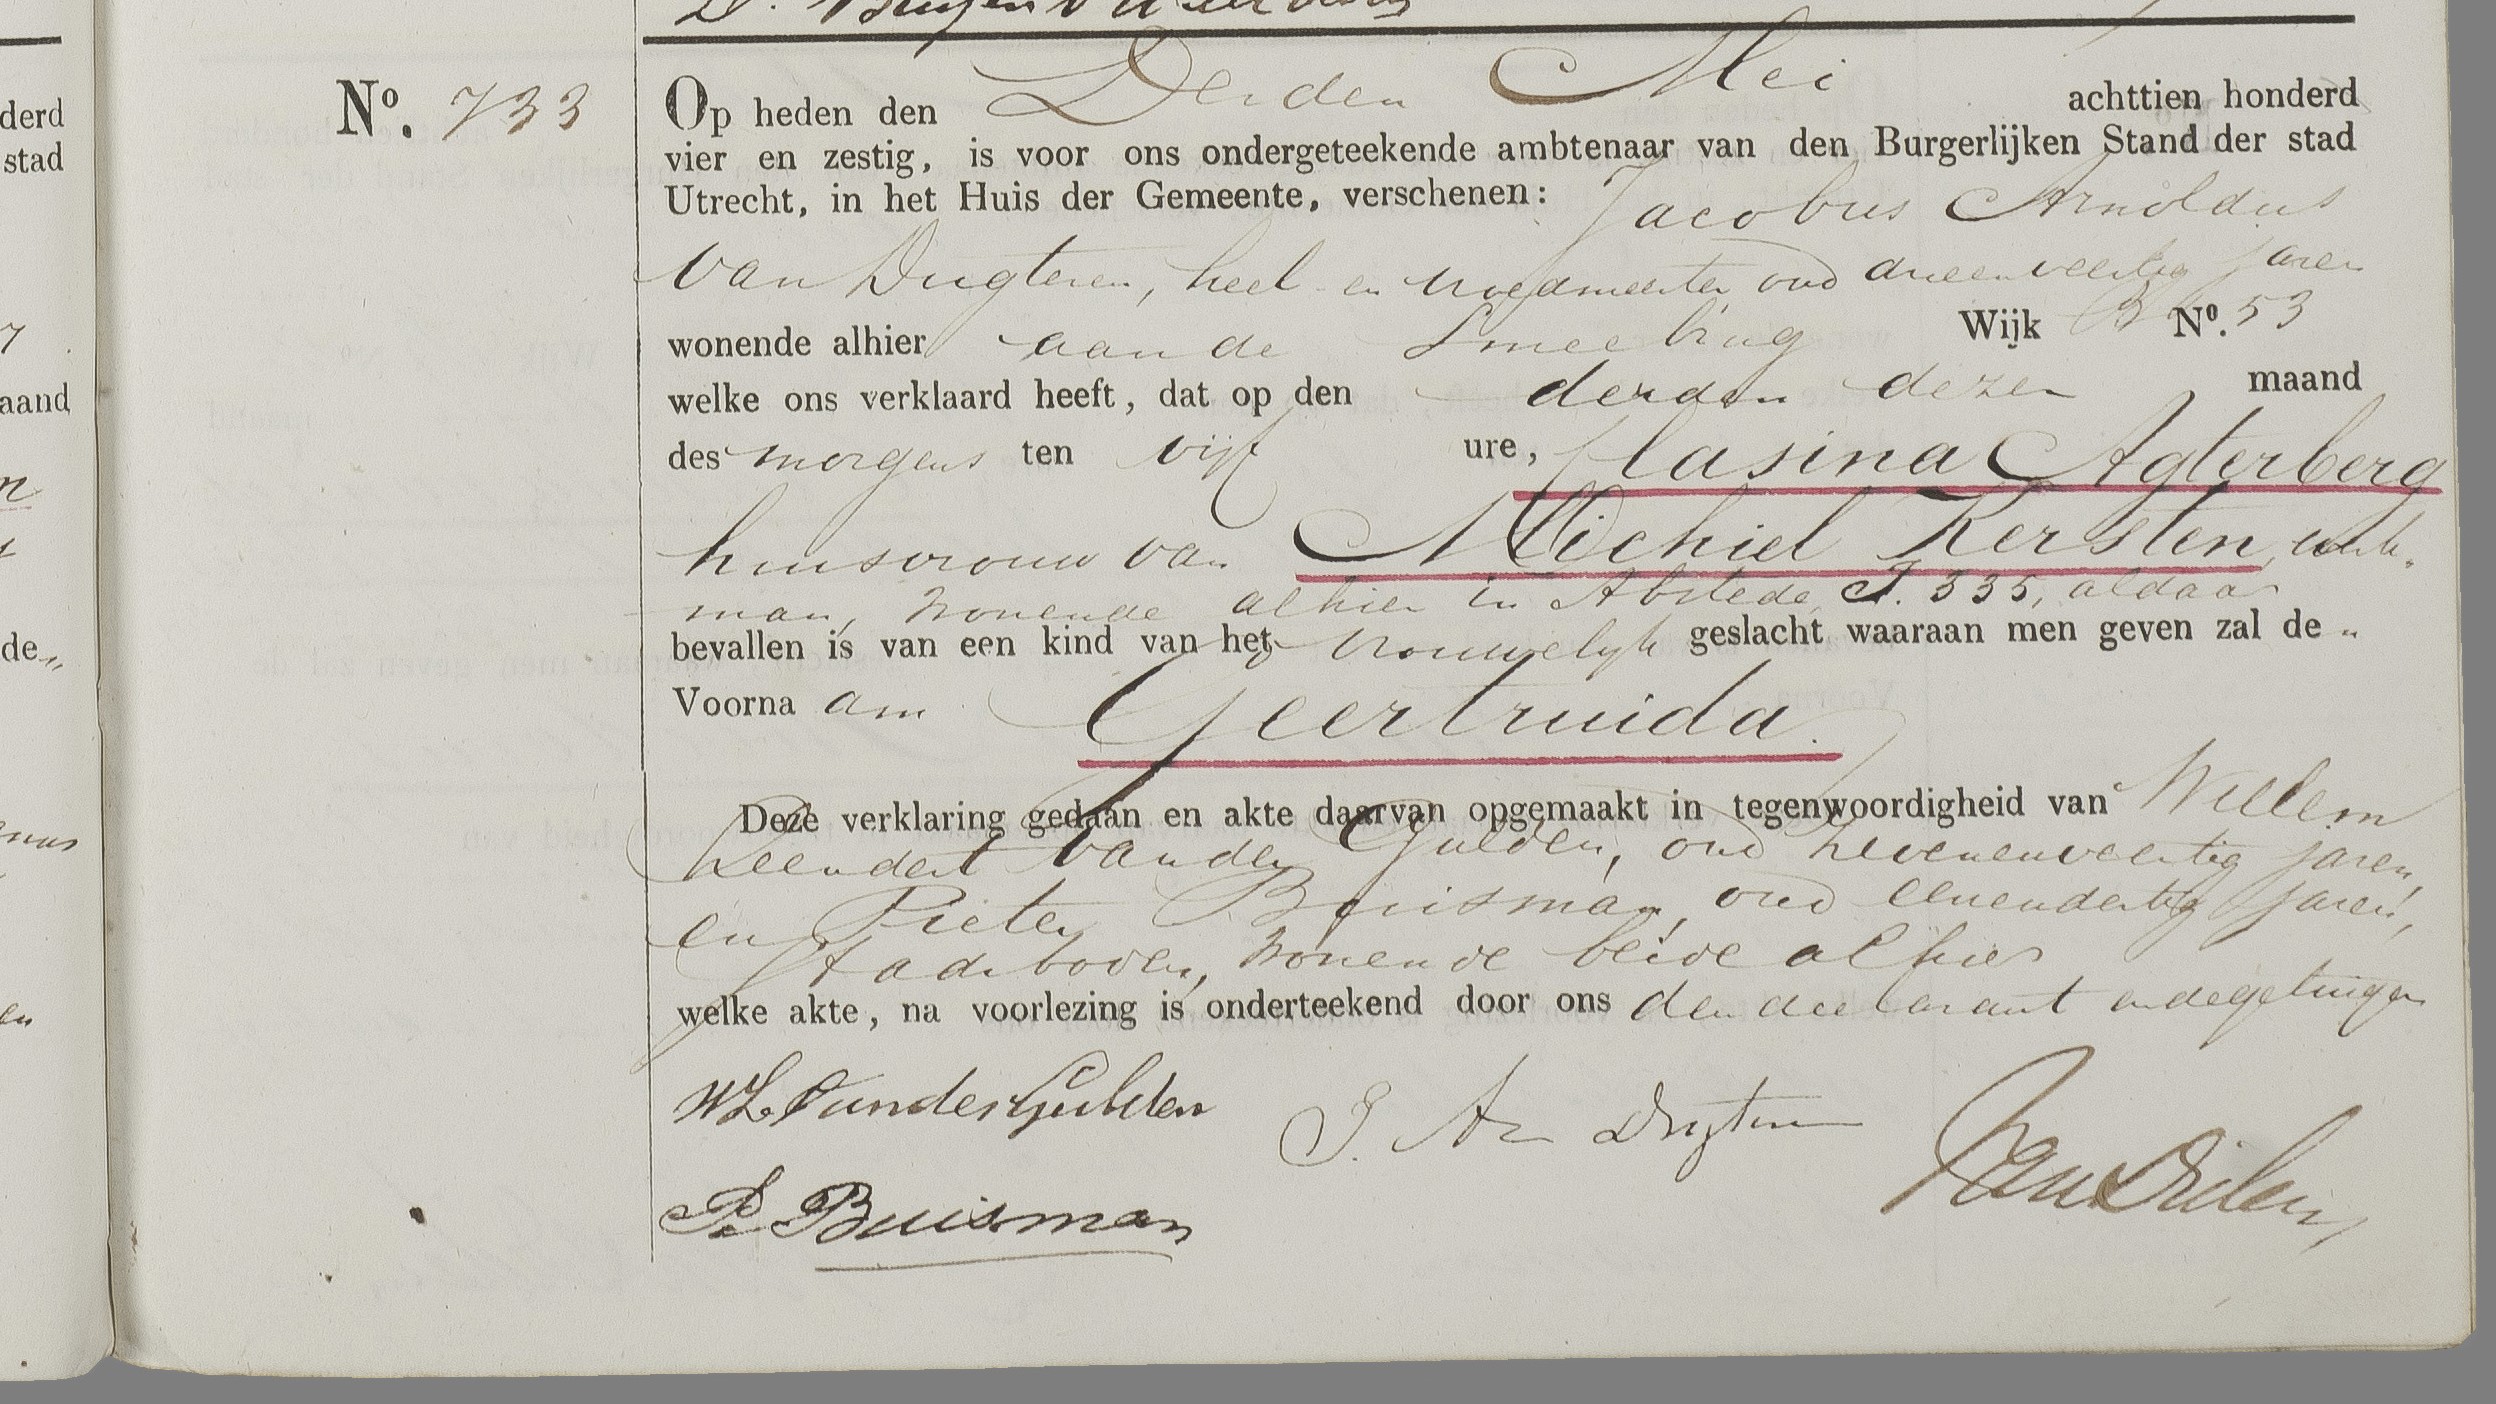 derd
stad
7
aand
de
No. 733
Op heden den Derden Mei achttien honderd
vier en zestig, is voor ons ondergeteekende ambtenaar van den Burgerlijken Stand der stad
Utrecht, in het Huis der Gemeente, verschenen: Jacobus Arnoldus
van Dugteren, heel en vroedmeester oud drieenveertig jaren
wonende alhier aan de Smeebrug Wijk B No. 53
welke ons verklaard heeft, dat op den derden dezer maand
des morgens ten vijf ure, Clasina Agterberg
huisvrouw van Michiel Kersten, werk-
man, wonende alhier in Abstede, J. 335, aldaar
bevallen is van een kind van het vrouwelijk geslacht waaraan men geven zal de n
Voorna am Geertruida.
Deze verklaring gedaan en akte daarvan opgemaakt in tegenwoordigheid van Willem
Leendert van der Gulden, oud zevenenveertig jaren,
en Pieter Buisman, oud eenendertig jaren,
stadsboden, wonende beide alhier
welke akte, na voorlezing is onderteekend door ons den declarant en de getuigen
W L van der Gulden
J. A v Dugteren
P. Buisman